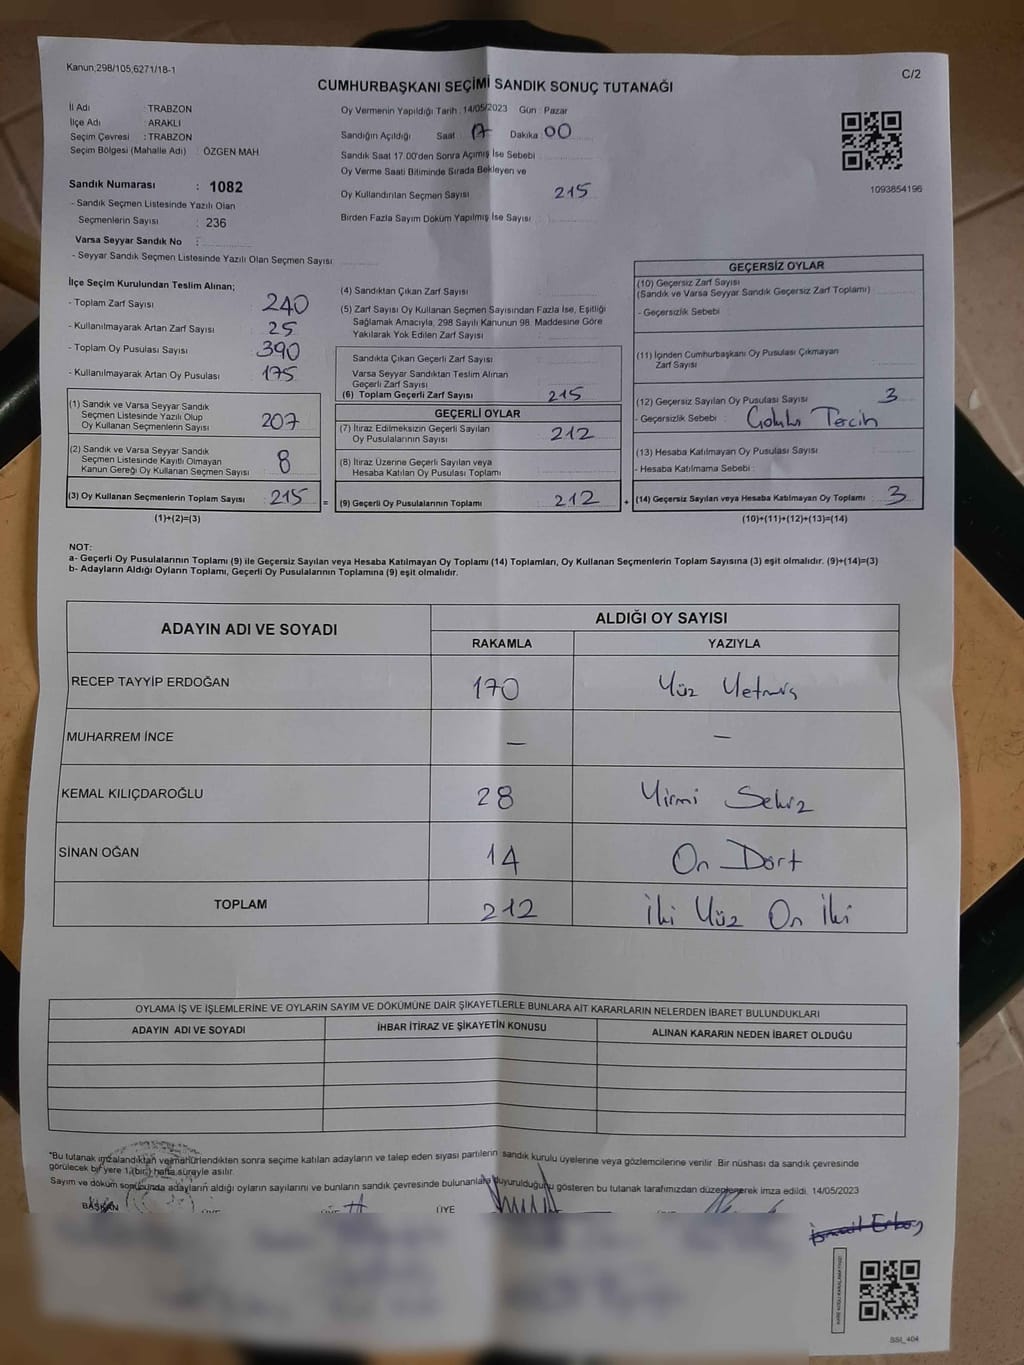 Kanun,298/105,6271/18-1
C/2
CUMHURBAŞKANI SEÇİMİ SANDIK SONUÇ TUTANAĞI
İl Adı : TRABZON
İlçe Adı : ARAKLI
Seçim Çevresi : TRABZON
Seçim Bölgesi (Mahalle Adı) : ÖZGEN MAH
Oy Vermenin Yapıldığı Tarih : 14/05/2023 Gün : Pazar
Sandığın Açıldığı Saat : 17 Dakika : 00
Sandık Saat 17.00'den Sonra Açımış İse Sebebi
Oy Verme Saati Bitiminde Sırada Bekleyen ve
Oy Kullandırılan Seçmen Sayısı 215
Birden Fazla Sayım Döküm Yapılmış İse Sayısı
1093854196
Sandık Numarası : 1082
- Sandık Seçmen Listesinde Yazılı Olan
Seçmenlerin Sayısı : 236
Varsa Seyyar Sandık No :
- Seyyar Sandık Seçmen Listesinde Yazılı Olan Seçmen Sayısı
İlçe Seçim Kurulundan Teslim Alınan;
- Toplam Zarf Sayısı 240
- Kullanılmayarak Artan Zarf Sayısı 25
- Toplam Oy Pusulası Sayısı 390
- Kullanılmayarak Artan Oy Pusulası 175
(1) Sandık ve Varsa Seyyar Sandık
Seçmen Listesinde Yazılı Olup
Oy Kullanan Seçmenlerin Sayısı 207
(2) Sandık ve Varsa Seyyar Sandık
Seçmen Listesinde Kayıtlı Olmayan
Kanun Gereği Oy Kullanan Seçmen Sayısı 8
(3) Oy Kullanan Seçmenlerin Toplam Sayısı 215
(1)+(2)=(3)
(4) Sandıktan Çıkan Zarf Sayısı
(5) Zarf Sayısı Oy Kullanan Seçmen Sayısından Fazla İse, Eşitliği
Sağlamak Amacıyla, 298 Sayılı Kanunun 98. Maddesine Göre
Yakılarak Yok Edilen Zarf Sayısı
Sandıkta Çıkan Geçerli Zarf Sayısı
Varsa Seyyar Sandıktan Teslim Alınan
Geçerli Zarf Sayısı
(6) Toplam Geçerli Zarf Sayısı 215
GEÇERLİ OYLAR
(7) İtiraz Edilmeksizin Geçerli Sayılan
Oy Pusulalarının Sayısı 212
(8) İtiraz Üzerine Geçerli Sayılan veya
Hesaba Katılan Oy Pusulası Toplamı
= (9) Geçerli Oy Pusulalarının Toplamı 212 +
GEÇERSİZ OYLAR
(10) Geçersiz Zarf Sayısı
(Sandık ve Varsa Seyyar Sandık Geçersiz Zarf Toplamı)
- Geçersizlik Sebebi :
(11) İçinden Cumhurbaşkanı Oy Pusulası Çıkmayan
Zarf Sayısı
(12) Geçersiz Sayılan Oy Pusulası Sayısı 3
- Geçersizlik Sebebi : Tercih
(13) Hesaba Katılmayan Oy Pusulası Sayısı
- Hesaba Katılmama Sebebi :
(14) Geçersiz Sayılan veya Hesaba Katılmayan Oy Toplamı 3
(10)+(11)+(12)+(13)=(14)
NOT:
a- Geçerli Oy Pusulalarının Toplamı (9) ile Geçersiz Sayılan veya Hesaba Katılmayan Oy Toplamı (14) Toplamları, Oy Kullanan Seçmenlerin Toplam Sayısına (3) eşit olmalıdır. (9)+(14)=(3)
b- Adayların Aldığı Oyların Toplamı, Geçerli Oy Pusulalarının Toplamına (9) eşit olmalıdır.
ADAYIN ADI VE SOYADI
ALDIĞI OY SAYISI
RAKAMLA YAZIYLA
RECEP TAYYİP ERDOĞAN 170 Yüz Yetmiş
MUHARREM İNCE — —
KEMAL KILIÇDAROĞLU 28 Yirmi Sekiz
SİNAN OĞAN 14 On Dört
TOPLAM 212 İki Yüz On İki
OYLAMA İŞ VE İŞLEMLERİNE VE OYLARIN SAYIM VE DÖKÜMÜNE DAİR ŞİKAYETLERLE BUNLARA AİT KARARLARIN NELERDEN İBARET BULUNDUKLARI
ADAYIN ADI VE SOYADI İHBAR İTİRAZ VE ŞİKAYETİN KONUSU ALINAN KARARIN NEDEN İBARET OLDUĞU
*Bu tutanak imzalandıktan ve mühürlendikten sonra seçime katılan adayların ve talep eden siyasi partilerin sandık kurulu üyelerine veya gözlemcilerine verilir. Bir nüshası da sandık çevresinde
görülecek bir yere 1 (bir) hafta süreyle asılır.
Sayım ve döküm sonucunda adayların aldığı oyların sayılarını ve bunların sandık çevresinde bulunanlara duyurulduğunu gösteren bu tutanak tarafımızdan düzenlenerek imza edildi. 14/05/2023
BAŞKAN ÜYE ÜYE ÜYE
SSI_404